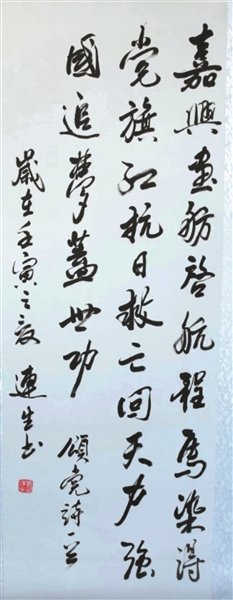 嘉興畫舫啓航程馬染得
党旗红抗日救亡回天力強
國追夢蓋世功 頌党詩一首
歲在壬寅之夏 連生书